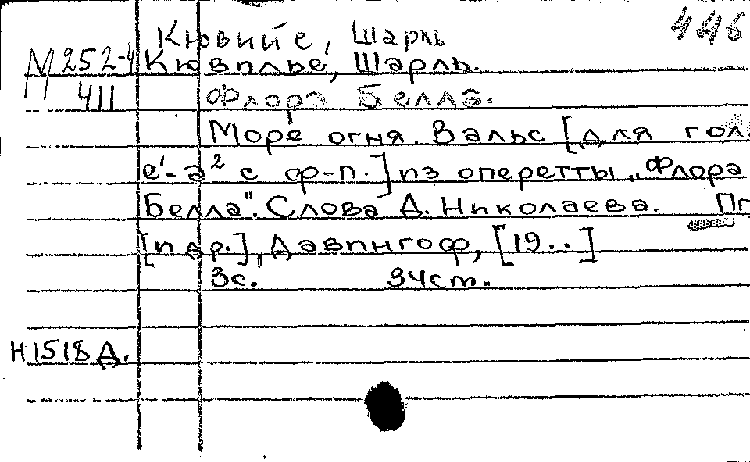 Кювийе, Шарль 446
М252-4 Кювилье, Шарль.
411 Флора Белла.
Море огня. Вальс [для гол.
е¹-а² с ф-п.] из оперетты „Флора
Белла". Слова Д. Николаева. Пг
[пдр.], Давингоф, [19..]
3с. 34ст.
Н1518Д.